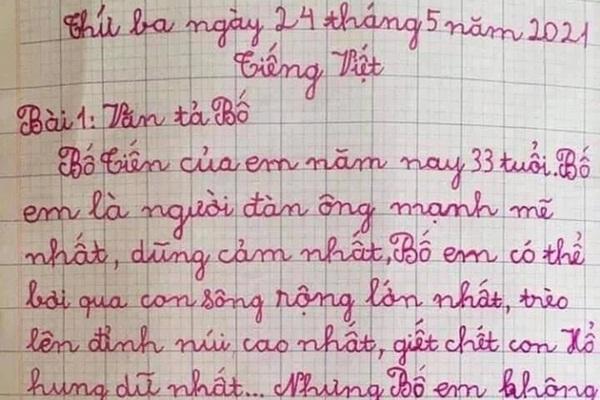 Thứ ba ngày 24 tháng 5 năm 2021
Tiếng Việt
Bài 1: Văn tả Bố
Bố Tiến của em năm nay 33 tuổi. Bố
em là người đàn ông mạnh mẽ
nhất, dũng cảm nhất, Bố em có thể
bơi qua con sông rộng lớn nhất, trèo
lên đỉnh núi cao nhất, giết chết con Hổ
hung dữ nhất... Nhưng Bố em không